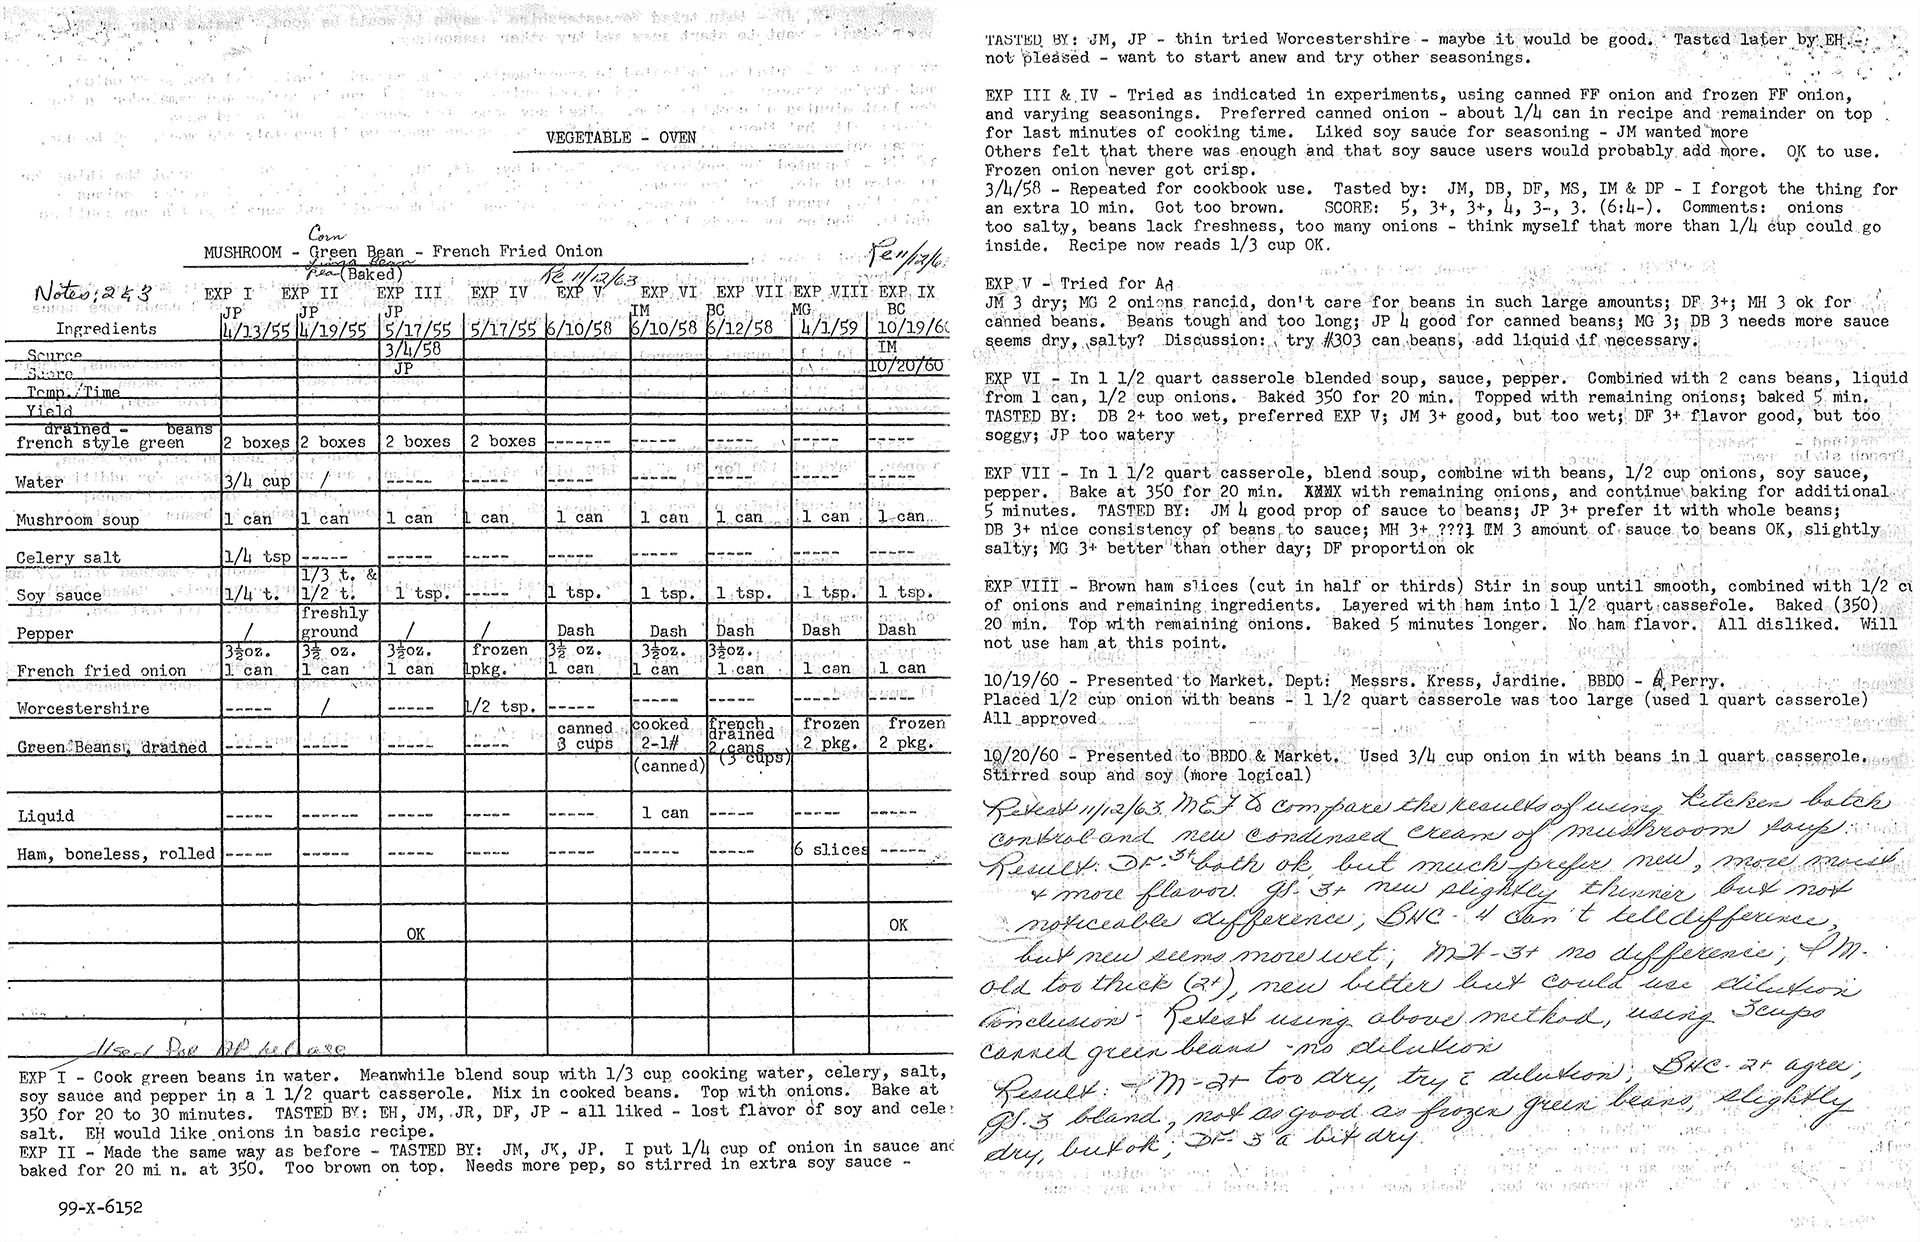 VEGETABLE - OVEN
Corn
MUSHROOM - Green Bean - French Fried Onion
Lima Bean
Pea (Baked)
Re 11/12/63
Re 11/12/6
Notes; 2 & 3
EXP I EXP II EXP III EXP IV EXP V EXP VI EXP VII EXP VIII EXP IX
JP JP JP IM BC MG BC
Ingredients 4/13/55 4/19/55 5/17/55 5/17/55 6/10/58 6/10/58 6/12/58 4/1/59 10/19/60
Source 3/4/58 IM
Score JP 10/20/60
Temp./Time
Yield
drained - beans
french style green 2 boxes 2 boxes 2 boxes 2 boxes ------- ----- ----- ----- -----
Water 3/4 cup / ----- ----- ----- ----- ----- ----- -----
Mushroom soup 1 can 1 can 1 can 1 can 1 can 1 can 1 can 1 can 1 can
Celery salt 1/4 tsp ----- ----- ----- ----- ----- ----- ----- -----
1/3 t. &
Soy sauce 1/4 t. 1/2 t. 1 tsp. ----- 1 tsp. 1 tsp. 1 tsp. 1 tsp. 1 tsp.
freshly
Pepper / ground / / Dash Dash Dash Dash Dash
3½oz. 3½ oz. 3½oz. frozen 3½ oz. 3½oz. 3½oz.
French fried onion 1 can 1 can 1 can 1pkg. 1 can 1 can 1 can 1 can 1 can
Worcestershire ----- / ----- 1/2 tsp. ----- ----- ----- ----- -----
canned cooked french frozen frozen
drained
Green Beans, drained ----- ----- ----- ----- 3 cups 2-1# 2 cans 2 pkg. 2 pkg.
(canned) (3 cups)
Liquid ----- ----- ----- ----- ----- 1 can ----- ----- -----
Ham, boneless, rolled ----- ----- ----- ----- ----- ----- ----- 6 slices -----
OK OK
Used for AP release
EXP I - Cook green beans in water. Meanwhile blend soup with 1/3 cup cooking water, celery, salt,
soy sauce and pepper in a 1 1/2 quart casserole. Mix in cooked beans. Top with onions. Bake at
350 for 20 to 30 minutes. TASTED BY: EH, JM, JR, DF, JP - all liked - lost flavor of soy and cele
salt. EH would like onions in basic recipe.
EXP II - Made the same way as before - TASTED BY: JM, JK, JP. I put 1/4 cup of onion in sauce and
baked for 20 mi n. at 350. Too brown on top. Needs more pep, so stirred in extra soy sauce -
99-X-6152
TASTED BY: JM, JP - thin tried Worcestershire - maybe it would be good. Tasted later by EH -
not pleased - want to start anew and try other seasonings.
EXP III & IV - Tried as indicated in experiments, using canned FF onion and frozen FF onion,
and varying seasonings. Preferred canned onion - about 1/4 can in recipe and remainder on top
for last minutes of cooking time. Liked soy sauce for seasoning - JM wanted more
Others felt that there was enough and that soy sauce users would probably add more. OK to use.
Frozen onion never got crisp.
3/4/58 - Repeated for cookbook use. Tasted by: JM, DB, DF, MS, IM & DP - I forgot the thing for
an extra 10 min. Got too brown. SCORE: 5, 3+, 3+, 4, 3-, 3. (6:4-). Comments: onions
too salty, beans lack freshness, too many onions - think myself that more than 1/4 cup could go
inside. Recipe now reads 1/3 cup OK.
EXP V - Tried for Ad
JM 3 dry; MG 2 onions rancid, don't care for beans in such large amounts; DF 3+; MH 3 ok for
canned beans. Beans tough and too long; JP 4 good for canned beans; MG 3; DB 3 needs more sauce
seems dry, salty? Discussion: try #303 can beans, add liquid if necessary.
EXP VI - In 1 1/2 quart casserole blended soup, sauce, pepper. Combined with 2 cans beans, liquid
from 1 can, 1/2 cup onions. Baked 350 for 20 min. Topped with remaining onions; baked 5 min.
TASTED BY: DB 2+ too wet, preferred EXP V; JM 3+ good, but too wet; DF 3+ flavor good, but too
soggy; JP too watery
EXP VII - In 1 1/2 quart casserole, blend soup, combine with beans, 1/2 cup onions, soy sauce,
pepper. Bake at 350 for 20 min. XXXX with remaining onions, and continue baking for additional
5 minutes. TASTED BY: JM 4 good prop of sauce to beans; JP 3+ prefer it with whole beans;
DB 3+ nice consistency of beans to sauce; MH 3+ ???; IM 3 amount of sauce to beans OK, slightly
salty; MG 3+ better than other day; DF proportion ok
EXP VIII - Brown ham slices (cut in half or thirds) Stir in soup until smooth, combined with 1/2 cu
of onions and remaining ingredients. Layered with ham into 1 1/2 quart casserole. Baked (350)
20 min. Top with remaining onions. Baked 5 minutes longer. No ham flavor. All disliked. Will
not use ham at this point.
10/19/60 - Presented to Market. Dept: Messrs. Kress, Jardine. BBDO - A Perry.
Placed 1/2 cup onion with beans - 1 1/2 quart casserole was too large (used 1 quart casserole)
All approved
10/20/60 - Presented to BBDO & Market. Used 3/4 cup onion in with beans in 1 quart casserole.
Stirred soup and soy (more logical)
Retest 11/12/63 MEF to compare the results of using kitchen batch
control and new condensed cream of mushroom soup.
Result: DF. 3+ both ok, but much prefer new, more moist
& more flavor. GS. 3+ new slightly thinner, but not
noticeable difference; BHC - 4 can't tell difference,
but new seems more wet; MH - 3+ no difference; IM.
old too thick (2+), new better but could use dilution
Conclusion - Retest using above method, using 3 cups
canned green beans - no dilution
Result: IM - 2+ too dry, try c dilution; BHC - 2+ agree;
GS. 3 bland, not as good as frozen green beans, slightly
dry, but ok; DF. 3 a bit dry.